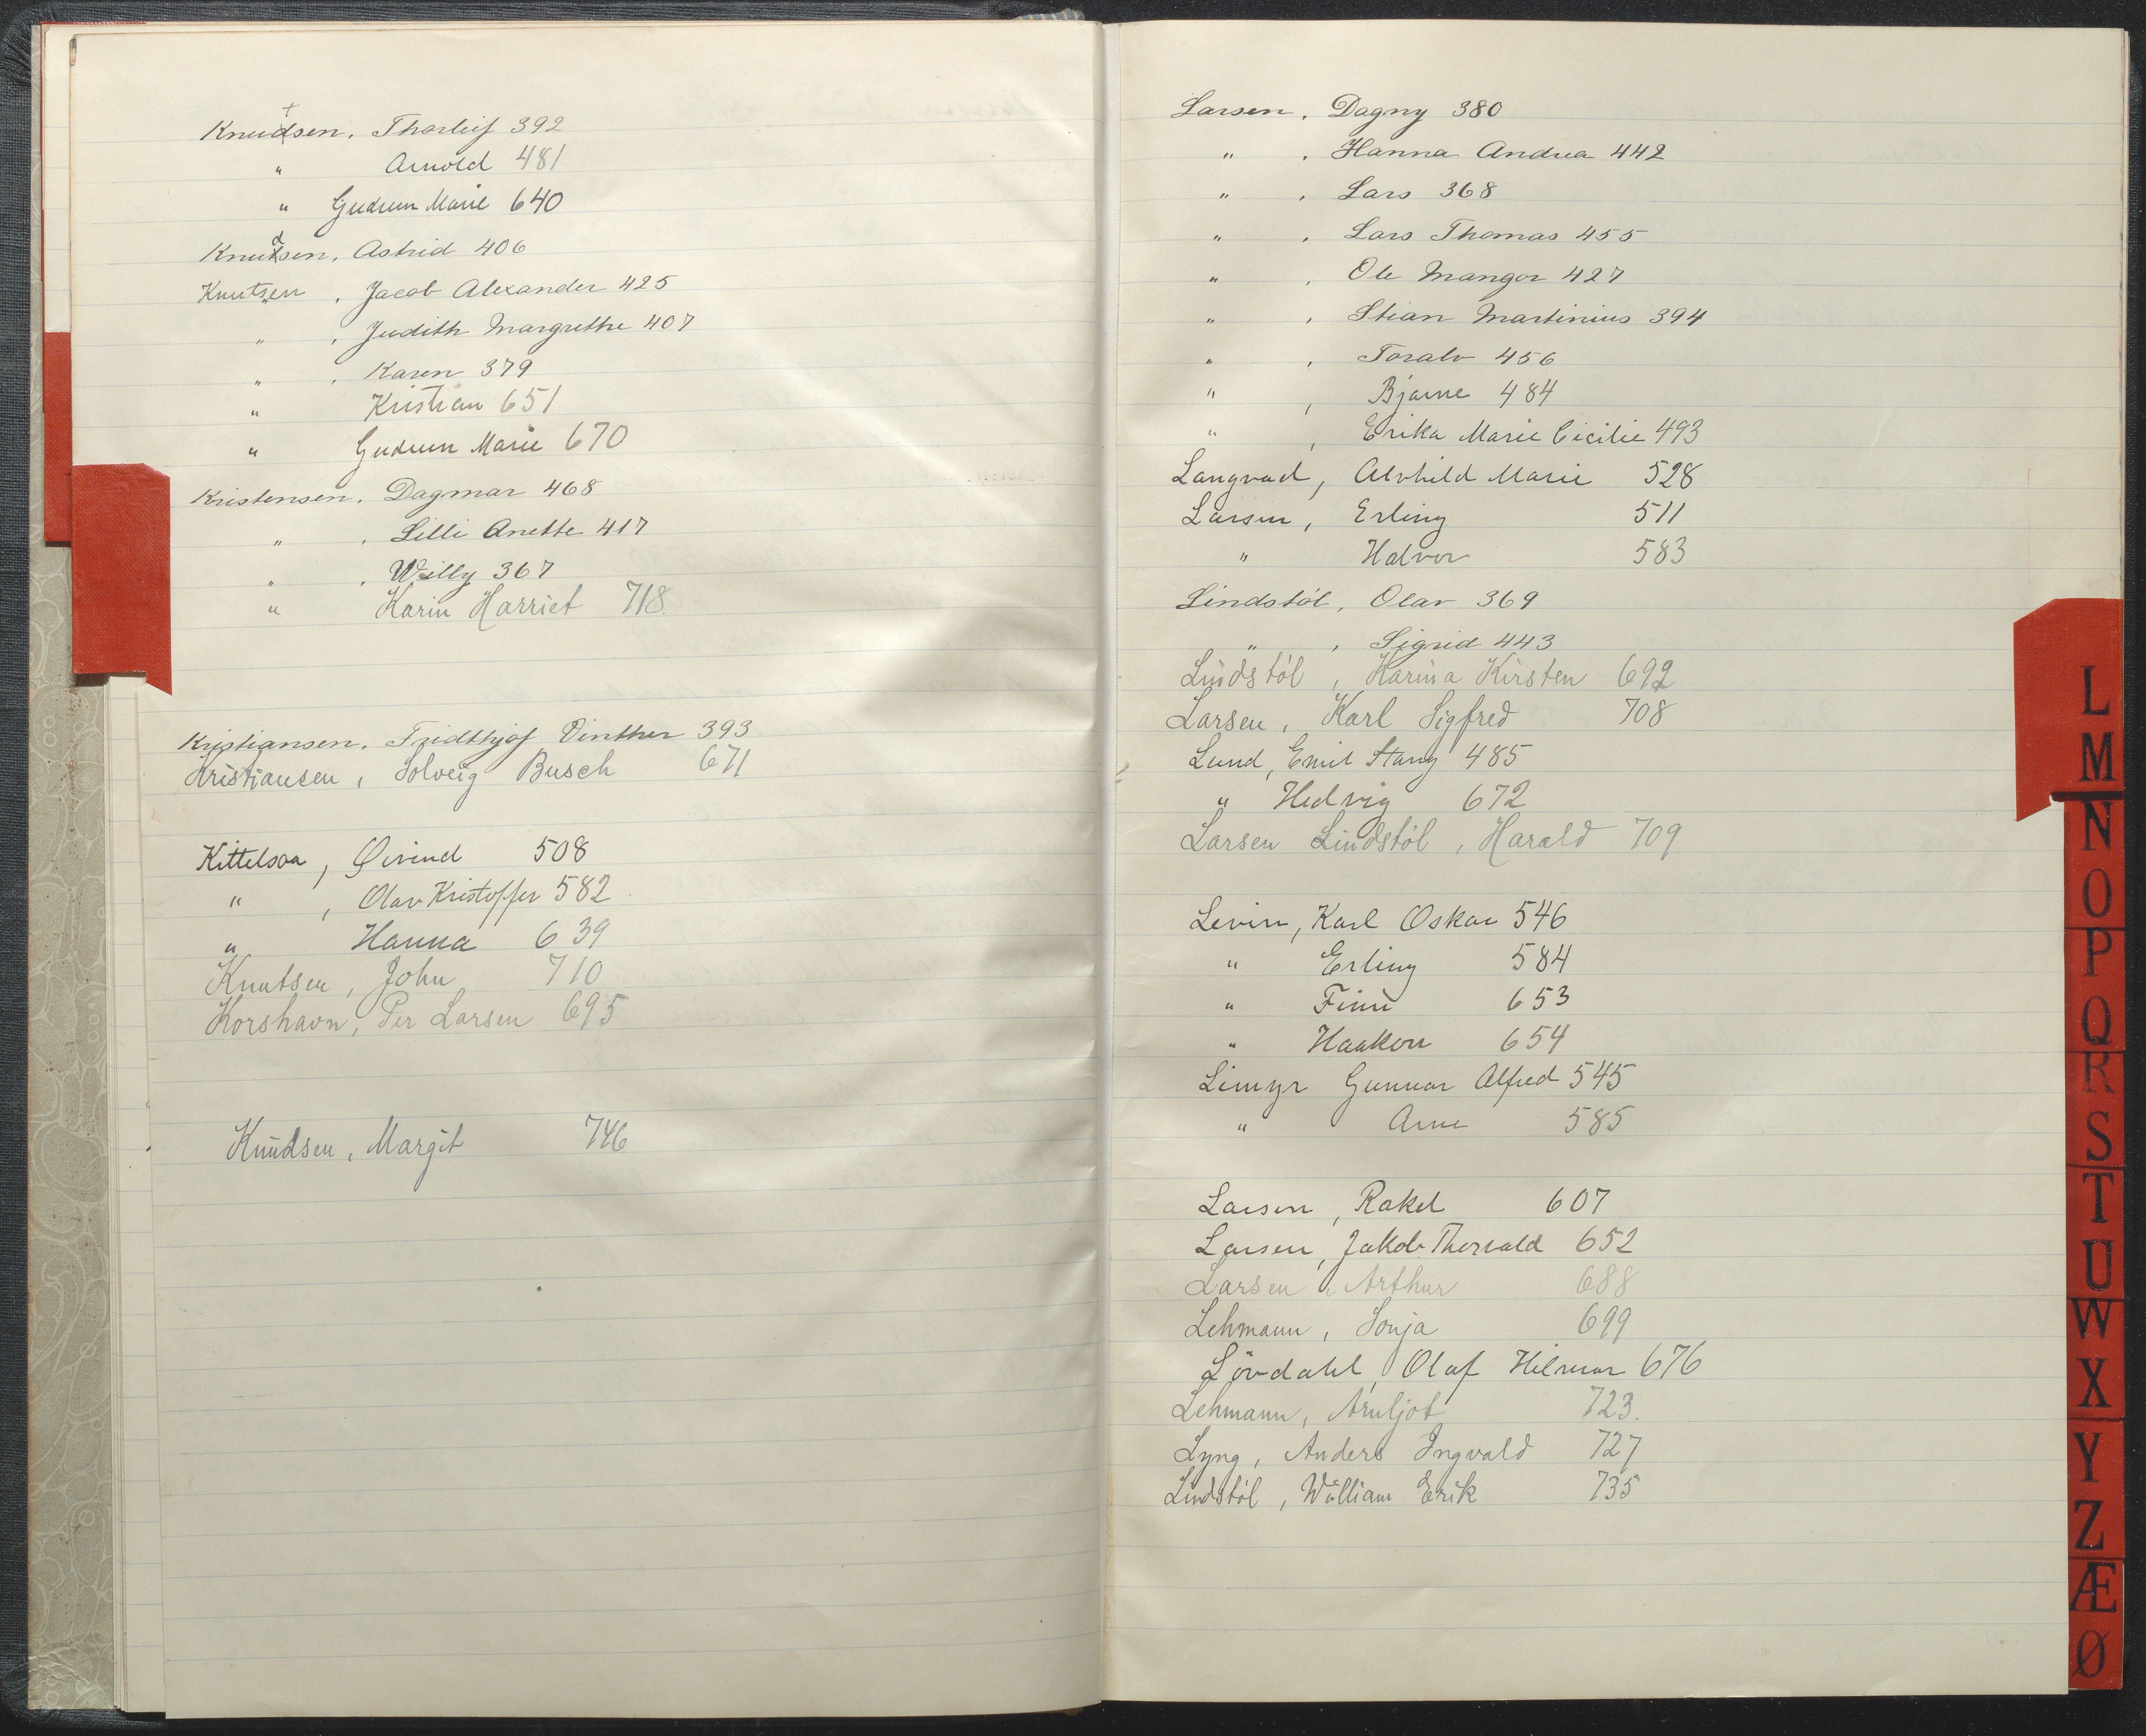 Knutsen, Thorleif 392
" Arnold 481
" Gudrun Marie 640
Knudsen, Astrid 406
Knutsen, Jacob Alexander 425
" , Judith Margrethe 407
" , Karen 379
" Kristian 651
" Gudrun Marie 670
Kristensen, Dagmar 468
" , Lilli Anette 417
" , Willy 367
" Karin Harriet 718
Kristiansen, Fridthjof Vinther 393
Kristiansen, Solveig Busch 671
Kittelsaa, Øivind 508
" , Olav Kristoffer 582
" Hanna 639
Knutsen, John 710
Korshavn, Per Larsen 695
Knudsen, Margit 746
Larsen, Dagny 380
" , Hanna Andrea 442
" , Lars 368
" , Lars Thomas 455
" , Ole Mangor 427
" , Stian Martinius 394
" , Toralv 456
" , Bjarne 484
" , Erika Marie Cicilie 493
Langvad, Alvhild Marie 528
Larsen, Erling 511
" Halvor 583
Lindstöl, Olav 369
" , Sigrid 443
Lindstöl, Karina Kirsten 692
Larsen, Karl Sigfred 708
Lund, Emil Stang 485
" Hedvig 672
Larsen Lindstöl, Harald 709
Levin, Karl Oskar 546
" Erling 584
" Finn 653
" Haakon 654
Limyr Gunnar Alfred 545
" Arne 585
Larsen, Rakel 607
Larsen, Jakob Thorvald 652
Larsen, Arthur 688
Lehmann, Sonja 699
Lövdahl, Olaf Hilmar 676
Lehmann, Arnljot 723.
Lyng, Anders Ingvald 727
Lindstöl, William Erik 735
L
M
N
O
P
Q
R
S
T
U
W
X
Y
Z
Æ
Ø